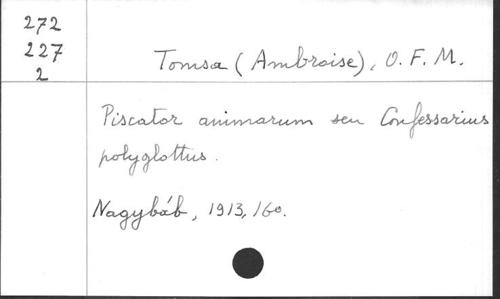 272
227
2
Tomsa (Ambroise), O. F. M.
Piscator animarum seu Confessarius
polyglottus.
Nagybáb, 1913, 16o.